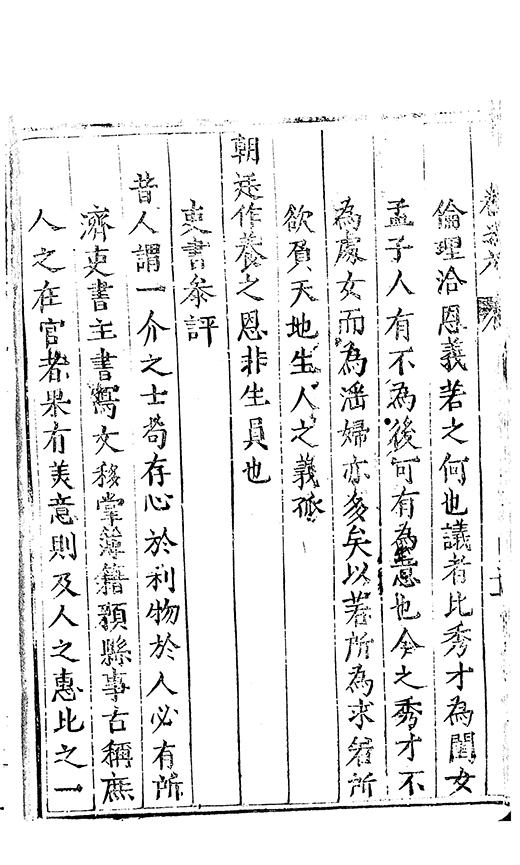 倫理洽恩義若之何也議者比秀才為閨女
孟子人有不為後可有為也今之秀才不
為處女而為滛婦亦多矣以若所為求若所
欲負天地生人之義孤
朝廷作養之恩非生員也
吏書叅評
昔人謂一介之士苟存心於利物於人必有所
濟吏書主書寫文移掌簿籍預縣事古稱庶
人之在官者果有美意則及人之惠比之一